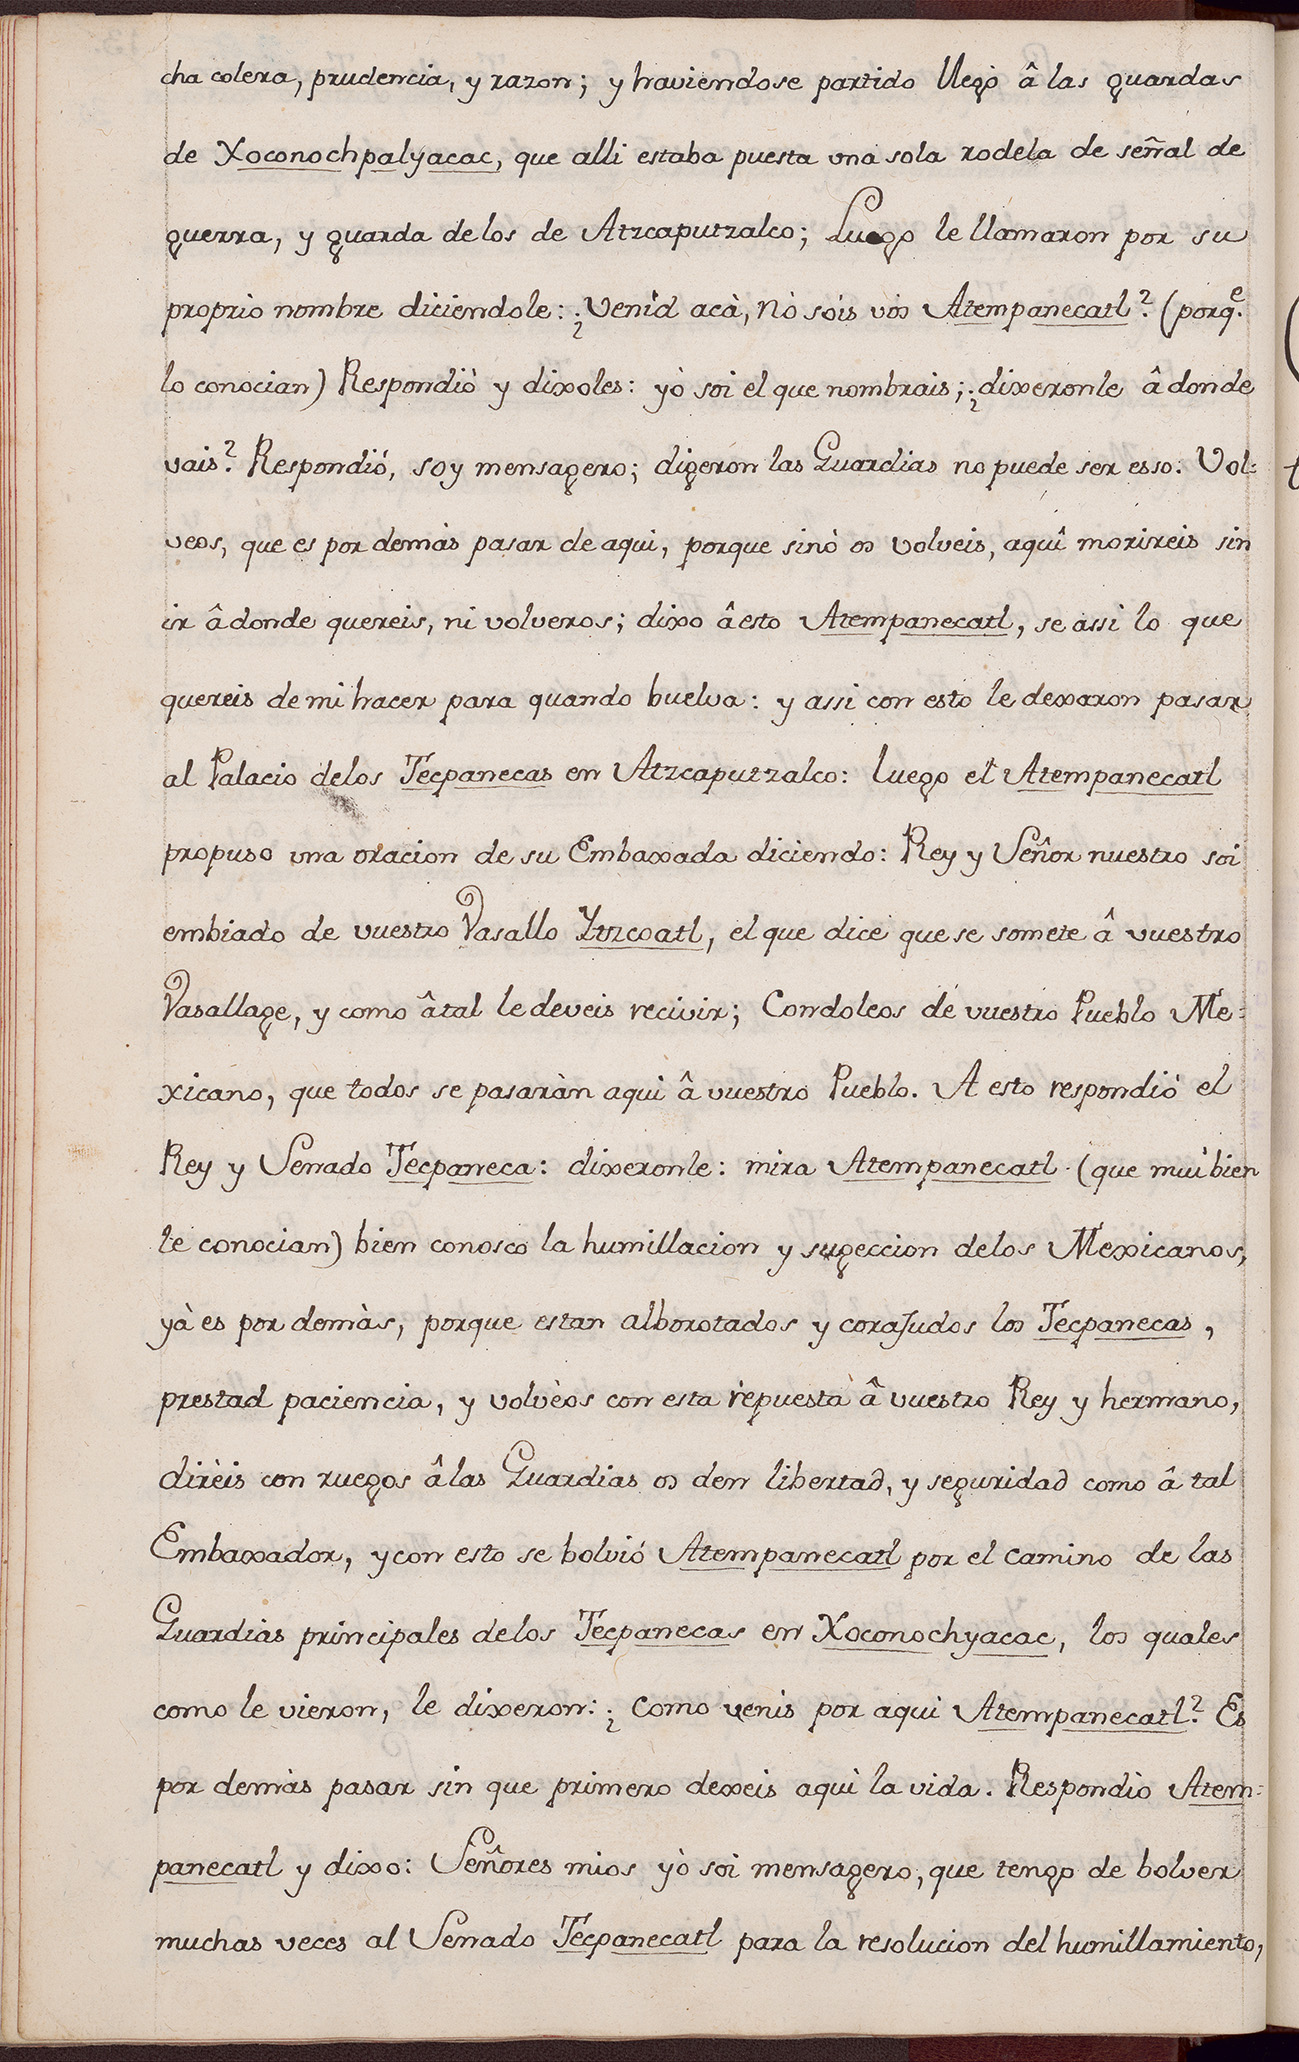 cha colera, prudencia, y razon; y haviendose partido llegò â las guardas
de Xoconochpalyacac, que alli estaba puesta una sola rodela de señal de
guerra, y guarda delos de Atzcaputzalco; Luego le llamaron por su
proprio nombre diciendole: ¿Venid acà, Nò sois vos Atempanecatl? (porq.e
lo conocian) Respondiò y dixoles: yò soi el que nombrais; ¿dixeronle â donde
vais? Respondió, soy mensagero; digeron las Guardias no puede ser esso. Vol:
veos, que es por demàs pasar de aqui, porque sinò os volveis, aquî morireis sin
ir â donde quereis, ni volveros; dixo â esto Atempanecatl, se assi lo que
quereis de mi hacer para quando buelva: y assi con esto le dexaron pasar
al Palacio delos Tecpanecas en Atzcaputzalco: luego el Atempanecatl
propuso una oracion de su Embaxada diciendo: Rey y Señor nuestro soi
embiado de vuestro Vasallo Ytzcoatl, el que dice que se somete â vuestro
Vasallage, y como â tal le deveis recivir; Condoleos de vuestro Pueblo Me:
xicano, que todos se pasaràn aqui â vuestro Pueblo. A esto respondiò el
Rey y Senado Tecpaneca: dixeronle: mira Atempanecatl (que mui bien
le conocian) bien conosco la humillacion y sugeccion delos Mexicanos,
yà es por demàs, porque estan alborotados y corajudos los Tecpanecas,
prestad paciencia, y volvèos con esta repuesta â vuestro Rey y hermano,
dirèis con ruegos â las Guardias os den libertad, y seguridad como â tal
Embaxador, y con esto se bolvió Atempanecatl por el camino de las
Guardias principales delos Tecpanecas en Xoconochyacac, los quales
como le vieron, le dixeron: ¿Como venis por aqui Atempanecatl? Es
por demàs pasar sin que primero dexeis aquì la vida. Respondiò Atem:
panecatl y dixo: Señores mios yò soi mensagero, que tengo de bolver
muchas veces al Senado Tecpanecatl para la resolucion del humillamiento,